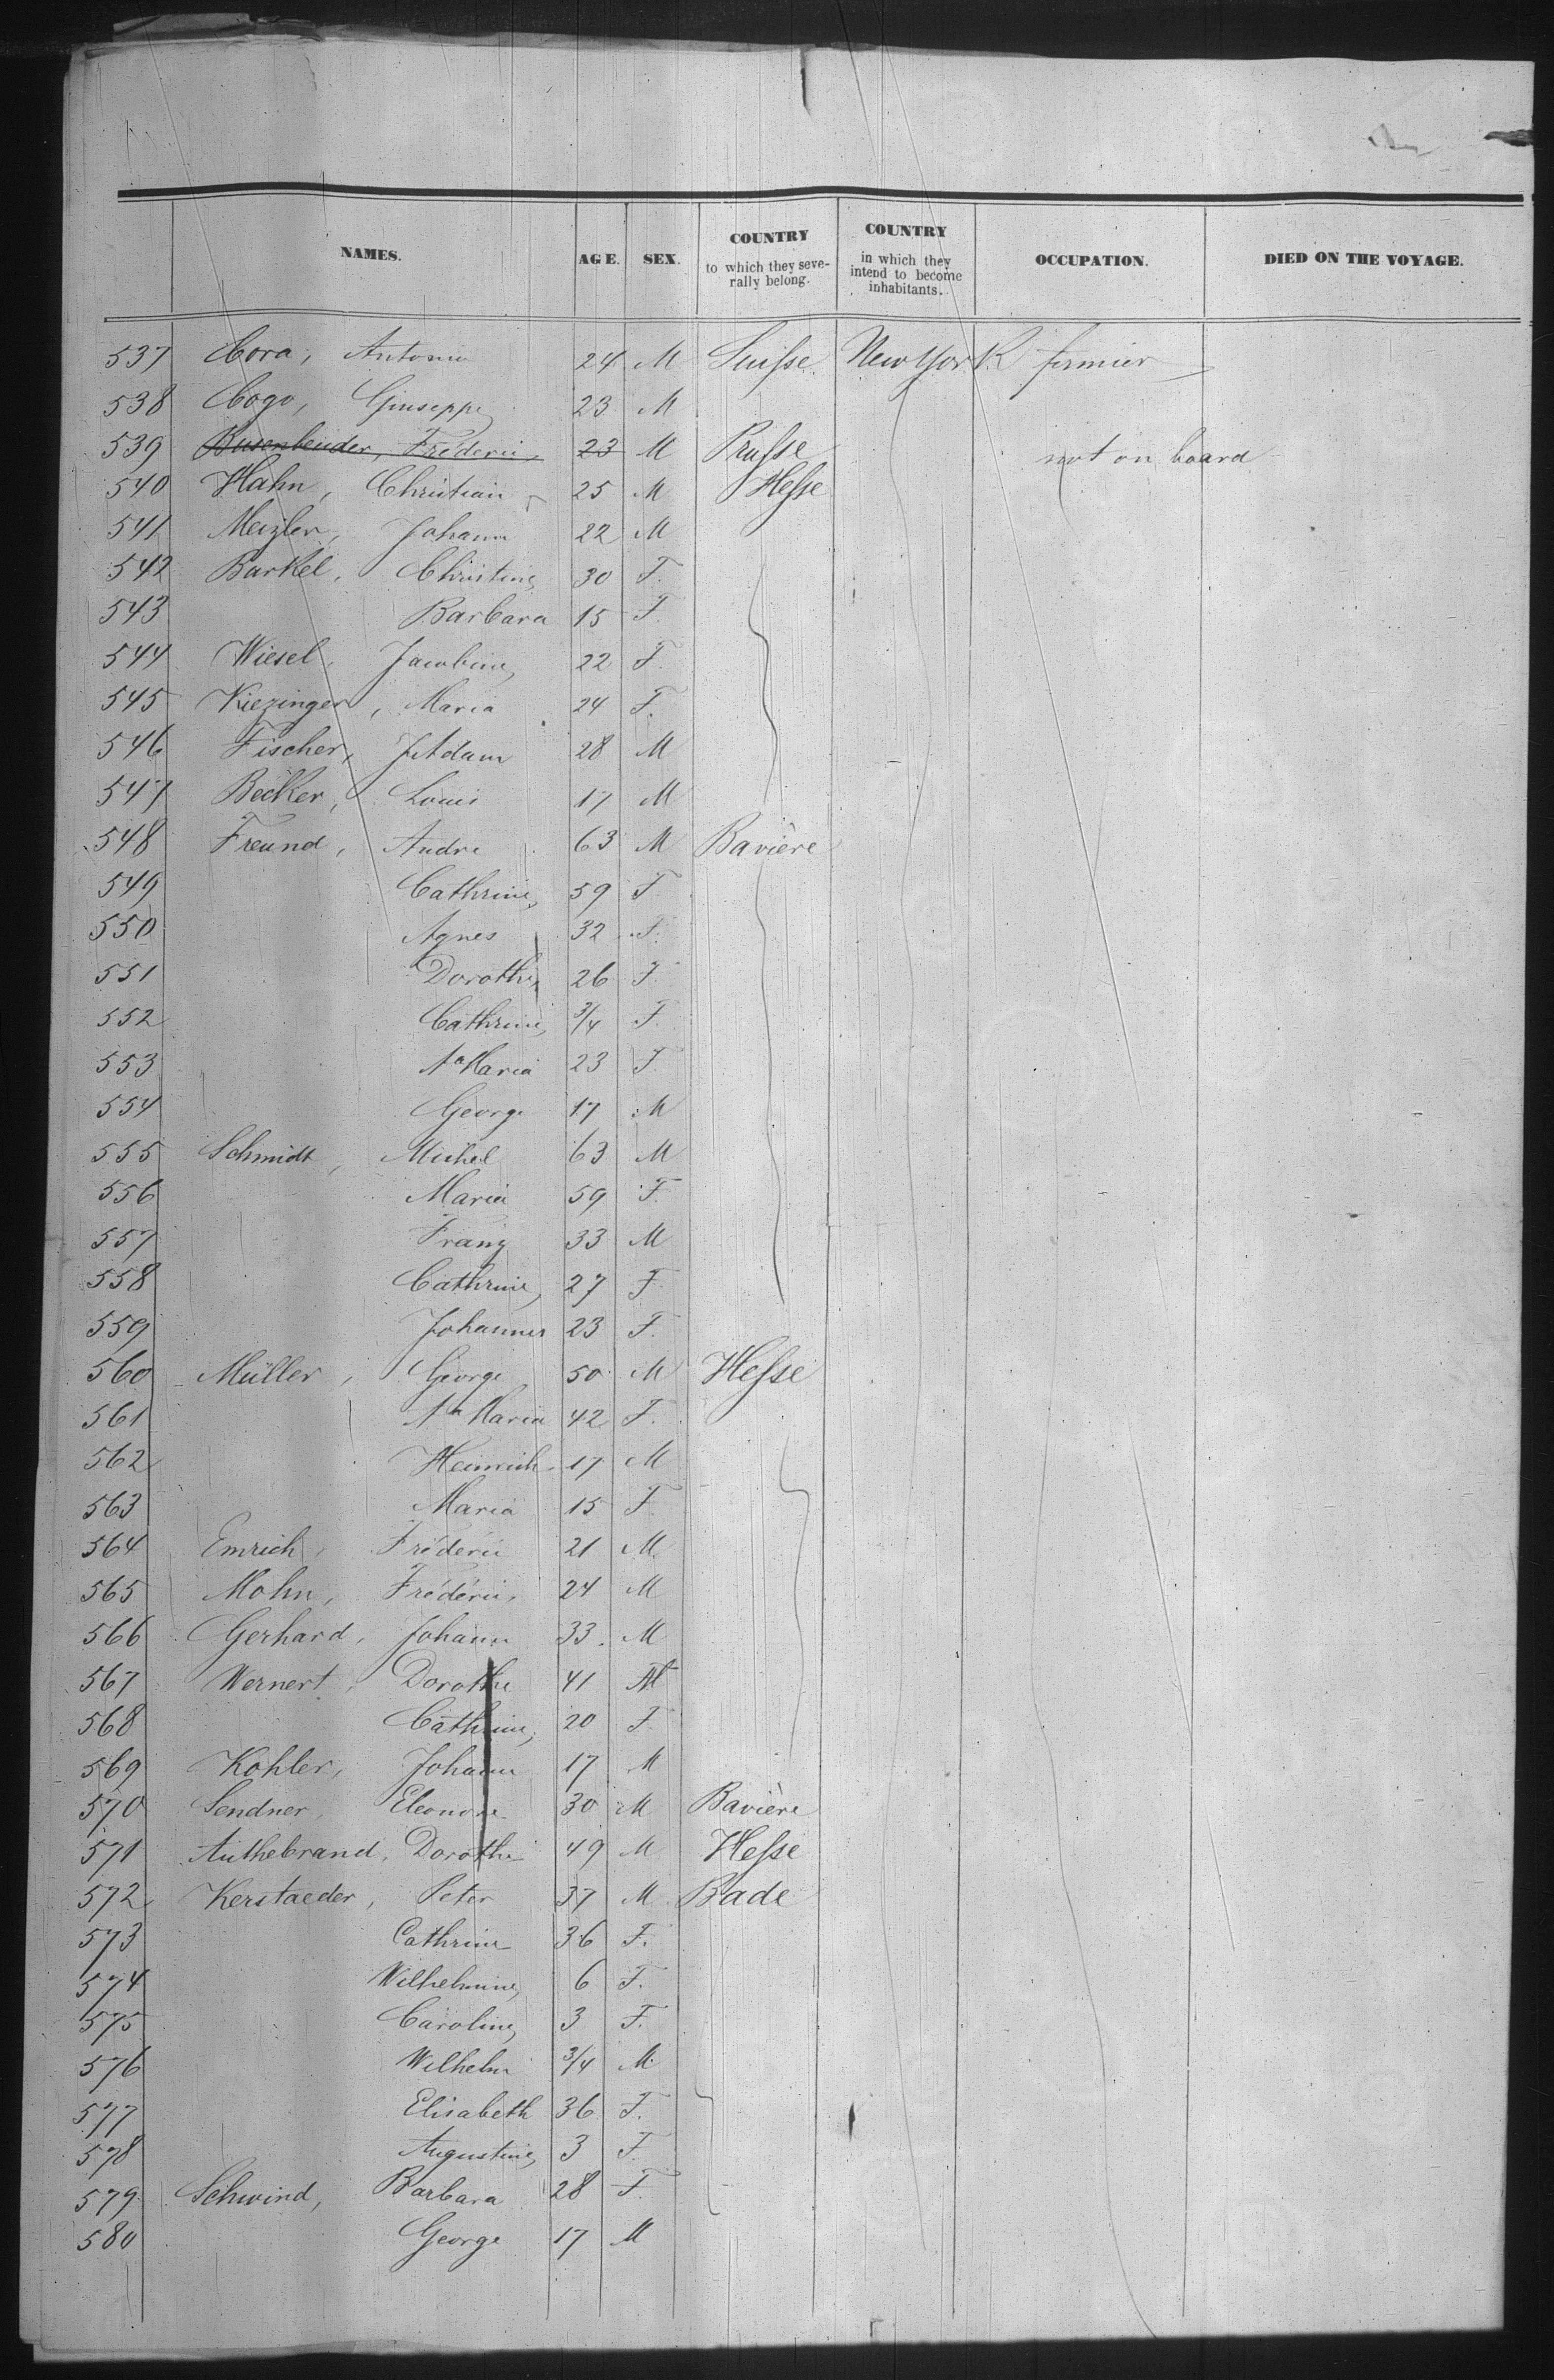 NAMES. AGE. SEX. COUNTRY to which they severally belong. COUNTRY in which they intend to become inhabitants. OCCUPATION. DIED ON THE VOYAGE.
537 Cora, Antonio 24 M Suisse New York fermier
538 Cogo, Giuseppe 23 M
539 Busenbender, Fréderic 23 M Prusse not on board
540 Hahn, Christian 25 M Hesse
541 Mezler, Johann 22 M
542 Barkel, Christine 30 F.
543 Barbara 15 F.
544 Wiesel, Jacobine 22 F.
545 Kiezinger, Maria 24 F.
546 Fischer, J Adam 28 M
547 Becker, Louis 17 M
548 Freund, Andre 63 M Bavière
549 Cathrine 59 F
550 Agnes 32 F.
551 Dorothe 26 F
552 Cathrine 3/4 F.
553 Aa Maria 23 F
554 George 17 M
555 Schmidt, Michel 63 M
556 Maria 59 F.
557 Franz 33 M
558 Cathrine 27 F
559 Johannes 23 F.
560 Müller, George 50 M Hesse
561 Aa Maria 42 F.
562 Heinrich 17 M
563 Maria 15 F
564 Emrich, Fréderic 21 M
565 Mohn, Fréderic 24 M
566 Gerhard, Johann 33. M
567 Wernert, Dorothe 41
568 Cathrine 20 F
569 Kohler, Johann 17 M
570 Sendner, Eleonore 30 M Bavière
571 Authebrand, Dorothe 49 M Hesse
572 Kerstaeder, Peter 37 M Bade
573 Cathrine 36 F.
574 Wilhelmine 6 F.
575 Caroline 3 F.
576 Wilhelm 3/4 M.
577 Elisabeth 36 F.
578 Augustine 3 F
579 Schwind, Barbara 28 F
580 George 17 M